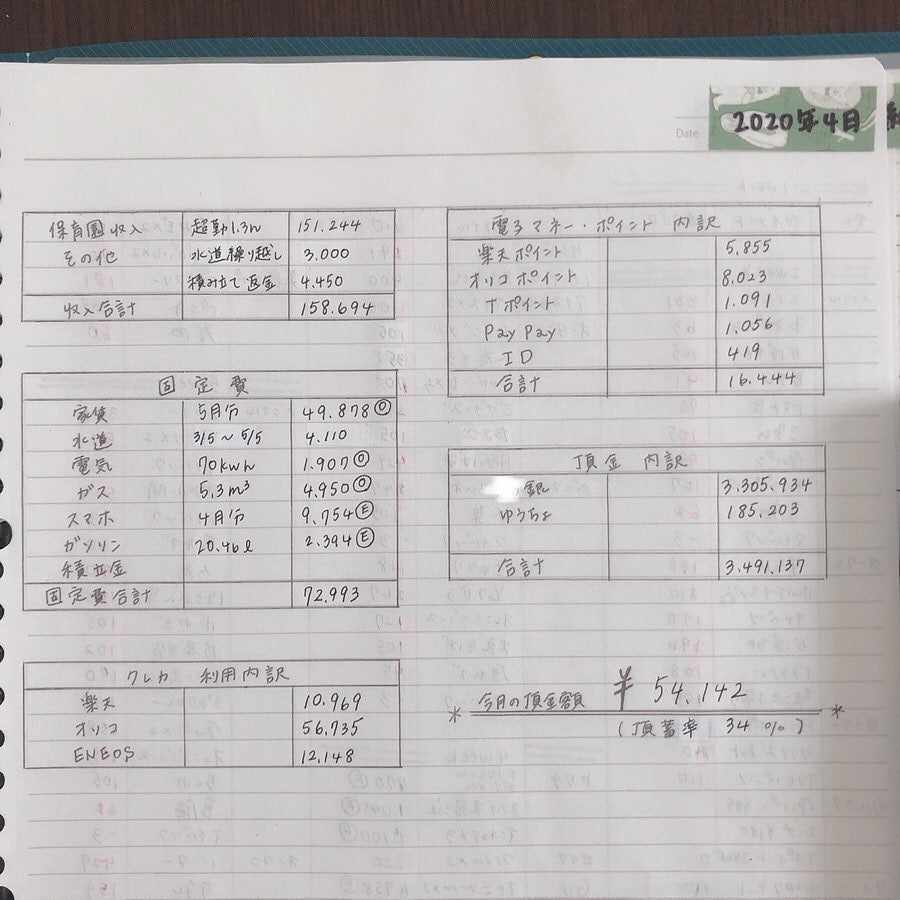 Date
2020年4月
保育園収入 超勤1.3h 151.244
その他 水道繰り越し 3.000
積み立て返金 4.450
収入合計 158.694
固定費
家賃 5月分 49.878 O
水道 3/5～5/5 4.110
電気 70kwh 1.907 O
ガス 5.3m³ 4.950 O
スマホ 4月分 9.754 E
ガソリン 20.46ℓ 2.394 E
積立金
固定費合計 72.993
クレカ 利用内訳
楽天 10.969
オリコ 56.735
ENEOS 12.148
電子マネー・ポイント 内訳
楽天ポイント 5.855
オリコポイント 8.023
Tポイント 1.091
PayPay 1.056
ID 419
合計 16.444
頂金 内訳
銀 3.305.934
ゆうちょ 185.203
合計 3.491.137
* 今月の頂金額 ¥54.142 *
(頂蓄率 34%)